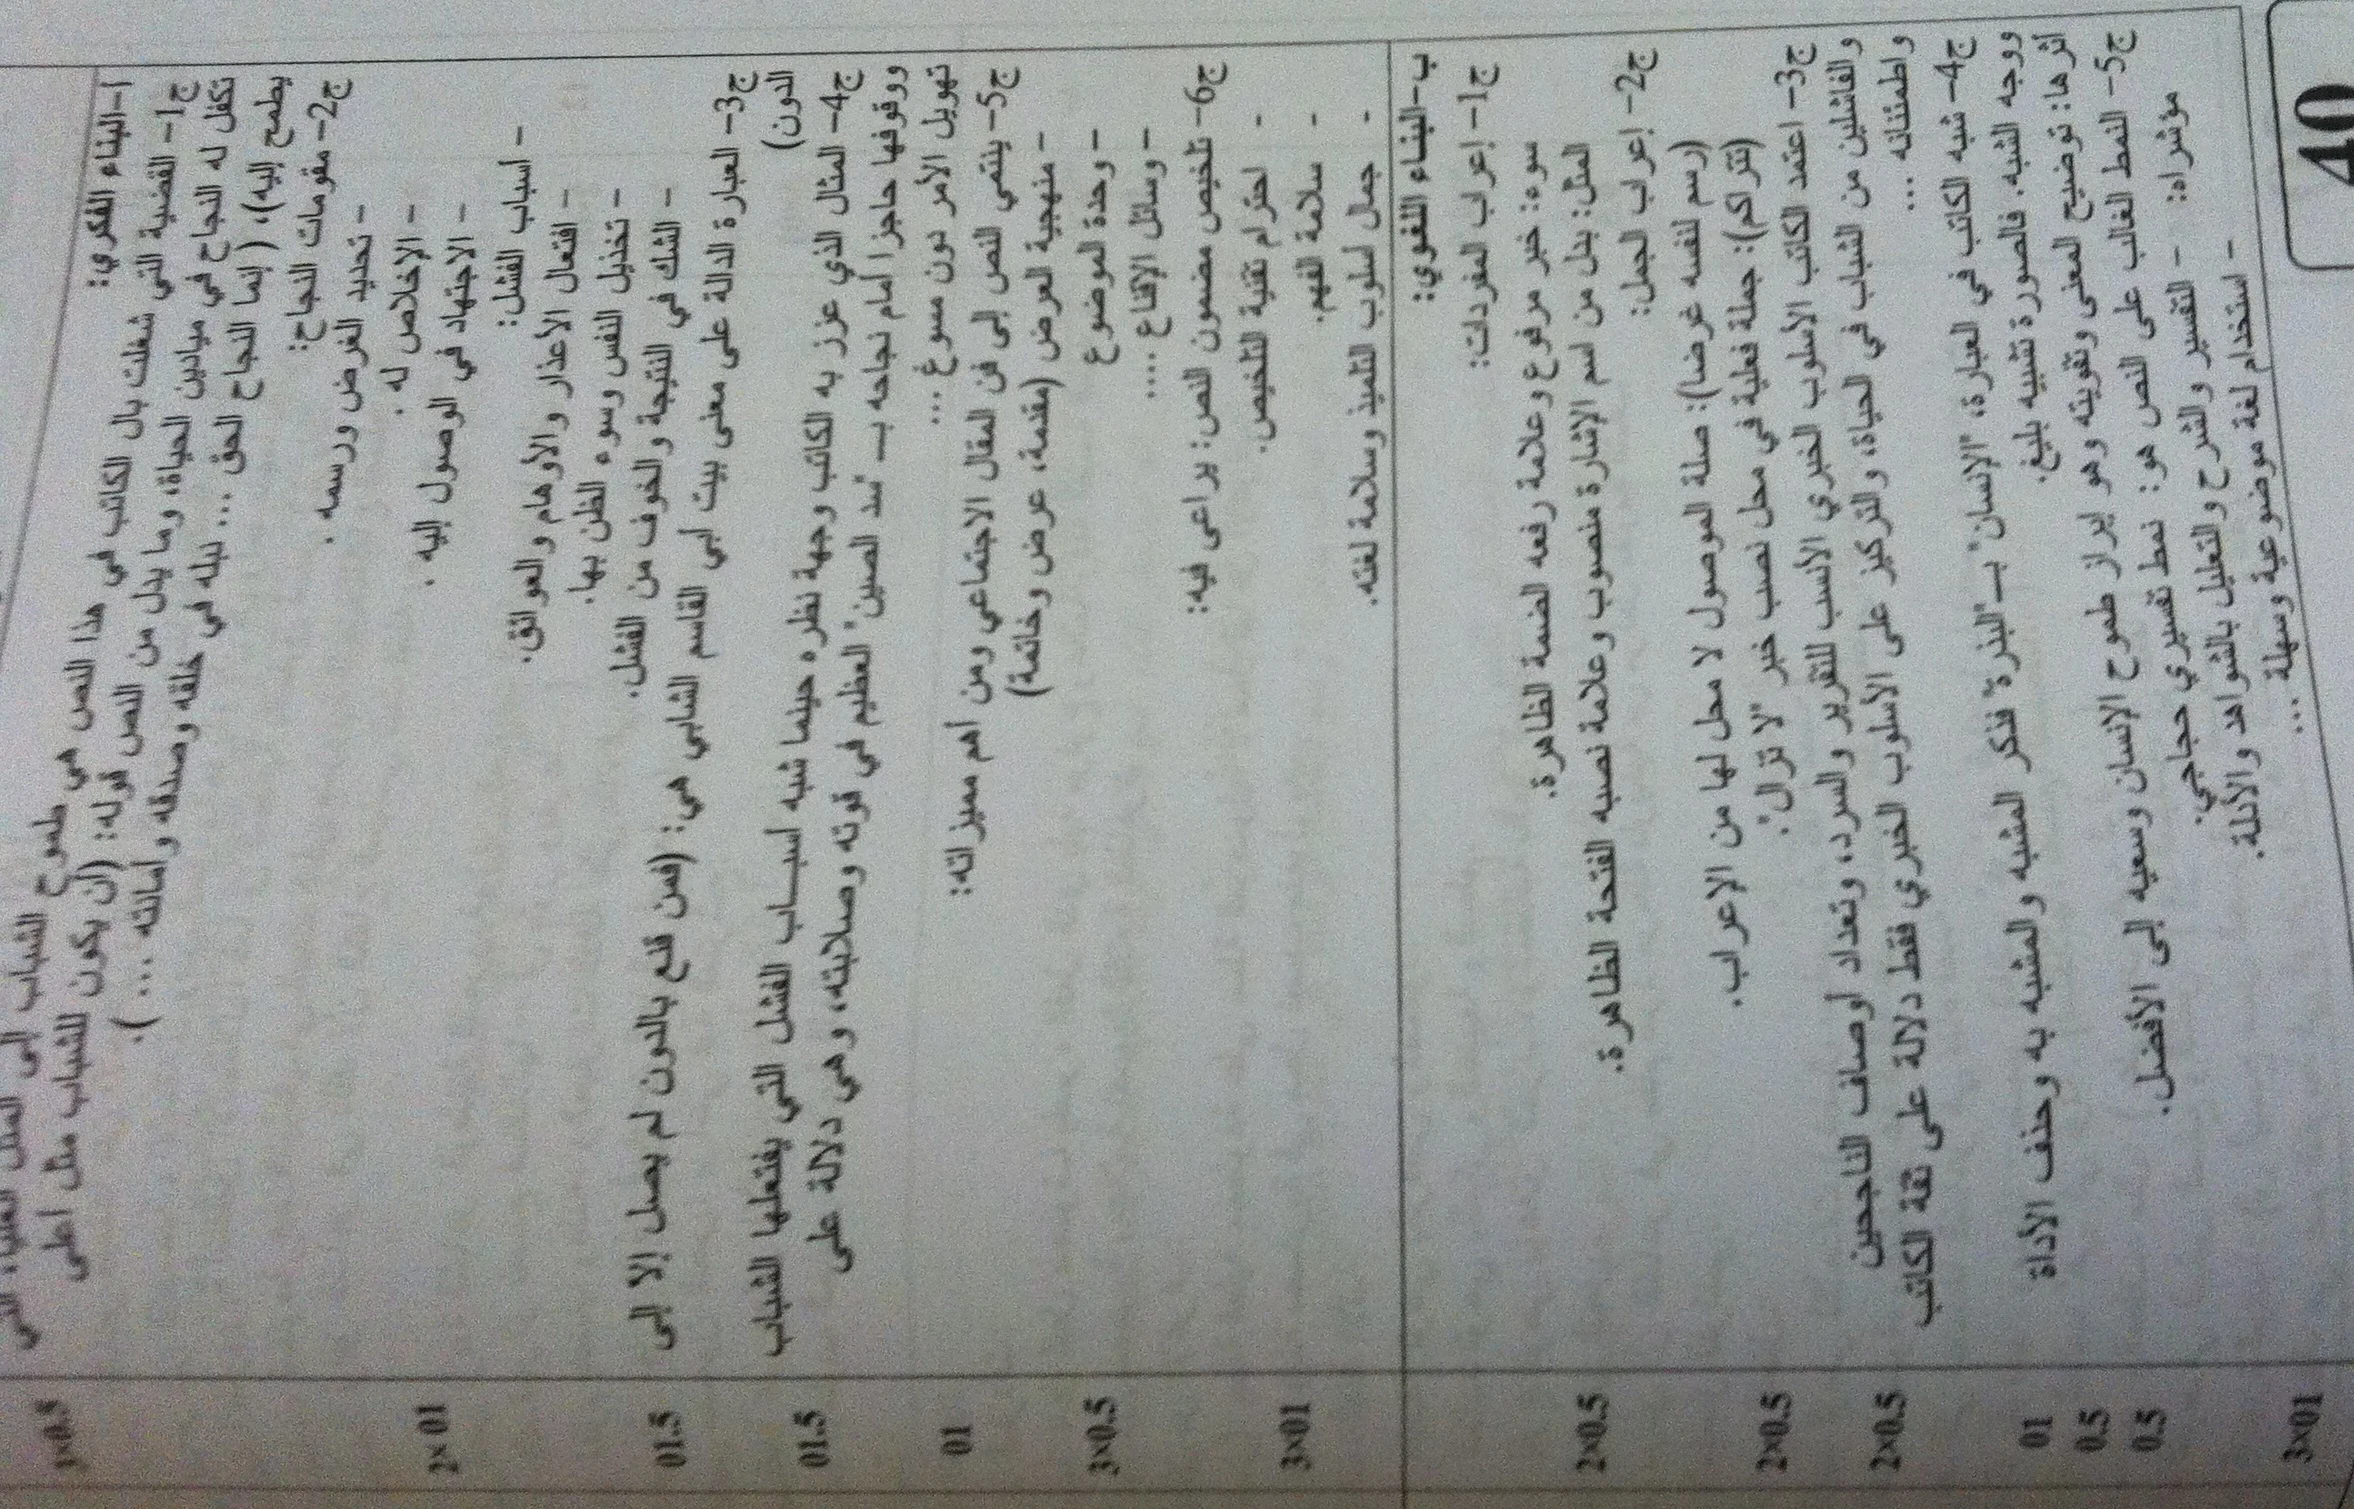 أ-البناء الفكري:
ج1- القضية التي شغلت بال الكاتب في هذا النص هي طموح الشباب إلى المثل العليا، التي
تكفل له النجاح في ميادين الحياة، وما يدل من النص قوله: (أن يكون للشباب مثل أعلى
يطمح إليه)، ( إنما النجاح الحق ... نبله في خلقه وصدقه وأمانته ... ).
3×0.5
ج2- مقومات النجاح:
- تحديد الغرض ورسمه .
- الإخلاص له .
- الاجتهاد في الوصول إليه .
2×01
- أسباب الفشل:
- افتعال الأعذار والأوهام والعوائق.
- تخذيل النفس وسوء الظن بها.
- الشك في النتيجة والخوف من الفشل.
ج3- العبارة الدالة على معنى بيت أبي القاسم الشابي هي: (فمن قنع بالدون لم يصل إلا إلى
الدون)
01.5
ج4- المثال الذي عزز به الكاتب وجهة نظره حينما شبه أسباب الفشل التي يفتعلها الشباب
ووقوفها حاجزا أمام نجاحه بـ "سد الصين" العظيم في قوته وصلابته، وهي دلالة على
تهويل الأمر دون مسوغ ...
01.5
ج5- ينتمي النص إلى فن المقال الاجتماعي ومن أهم مميزاته:
01
- منهجية العرض (مقدمة، عرض وخاتمة)
- وحدة الموضوع
- وسائل الإقناع ....
3×0.5
ج6- تلخيص مضمون النص: يراعى فيه:
- احترام تقنية التلخيص.
- سلامة الفهم.
- جمال أسلوب التلميذ وسلامة لغته.
3×01
ب-البناء اللغوي:
ج1- إعراب المفردات:
سوء: خبر مرفوع وعلامة رفعه الضمة الظاهرة.
المثل: بدل من اسم الإشارة منصوب وعلامة نصبه الفتحة الظاهرة.
2×0.5
ج2- إعراب الجمل:
(رسم لنفسه غرضا): صلة الموصول لا محل لها من الإعراب.
(تتراكم): جملة فعلية في محل نصب خبر "لا تزال".
2×0.5
ج3- اعتمد الكاتب الأسلوب الخبري الأنسب للتقرير والسرد، وتعداد أوصاف الناجحين
والفاشلين من الشباب في الحياة، والتركيز على الأسلوب الخبري فقط دلالة على ثقة الكاتب
واطمئنانه ...
2×0.5
ج4- شبه الكاتب في العبارة، "الإنسان" بـ"البذرة" فذكر المشبه والمشبه به وحذف الأداة
ووجه الشبه. فالصورة تشبيه بليغ.
01
أثرها: توضيح المعنى وتقويته وهو إبراز طموح الإنسان وسعيه إلى الأفضل.
0.5
ج5- النمط الغالب على النص هو: نمط تفسيري حجاجي:
0.5
مؤشراه: - التفسير والشرح والتعليل بالشواهد والأدلة.
- استخدام لغة موضوعية وسهلة ...
3×01
40